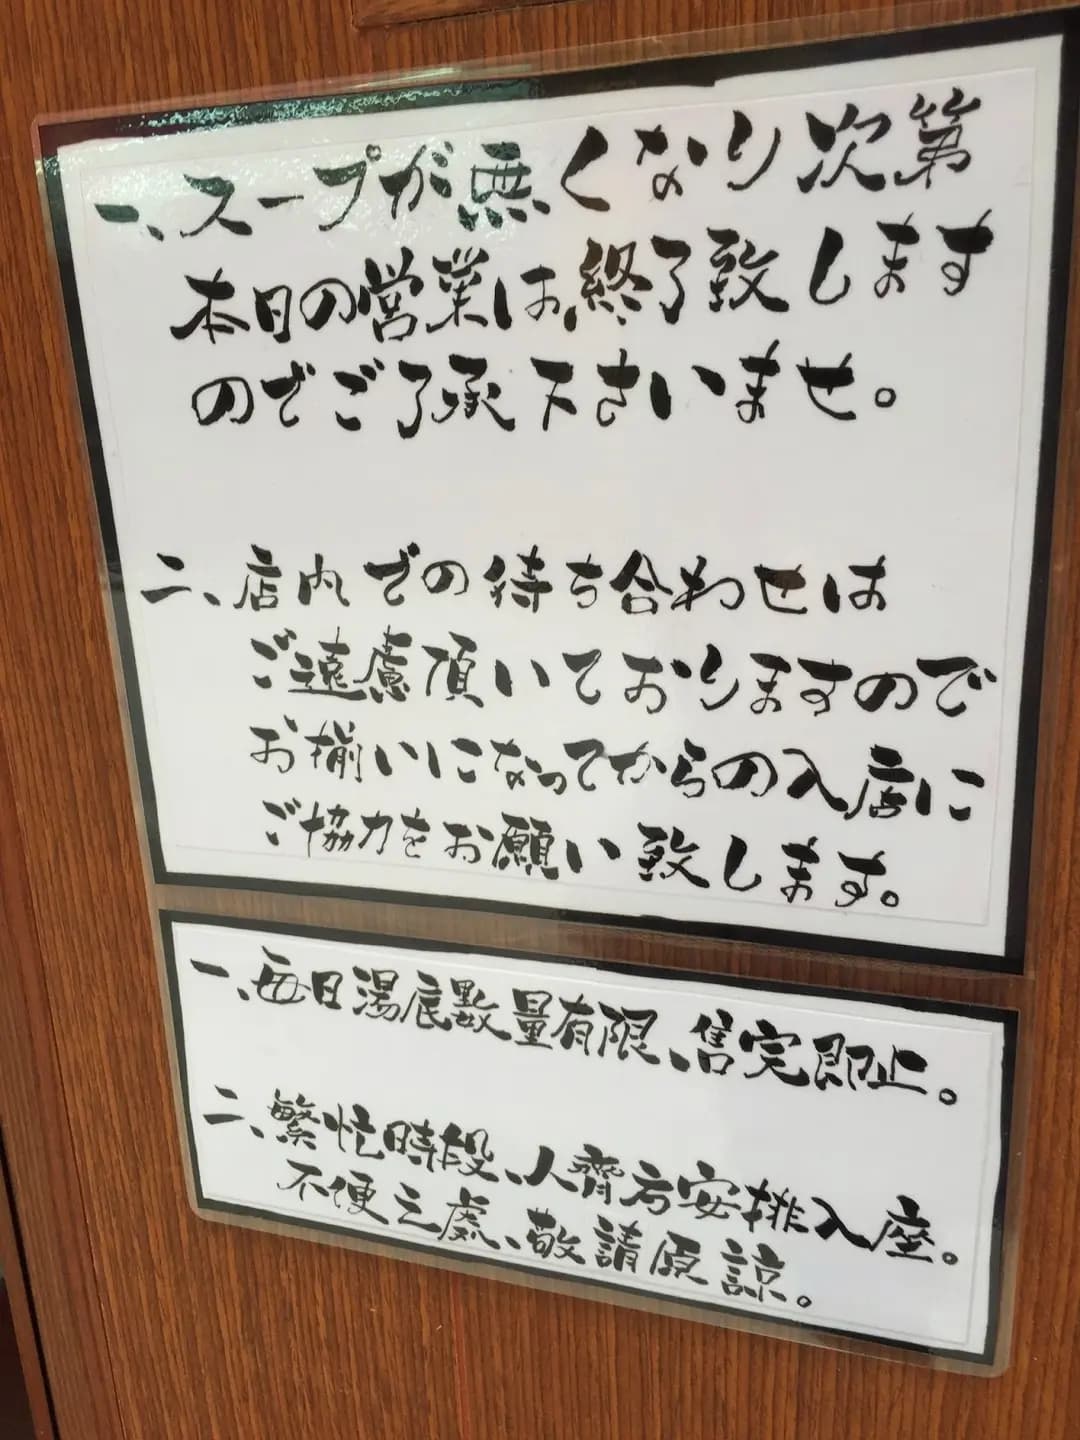 一、スープが無くなり次第
本日の営業は、終了致します
のでご了承下さいませ。
二、店内での待ち合わせは
ご遠慮頂いておりますので
お揃いになってからの入店に
ご協力をお願い致します。
一、每日湯底數量有限、售完即止。
二、繁忙時段、人齊方安排入座。
不便之處、敬請原諒。